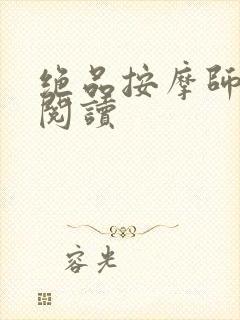 绝品按摩師
閱讀
容光